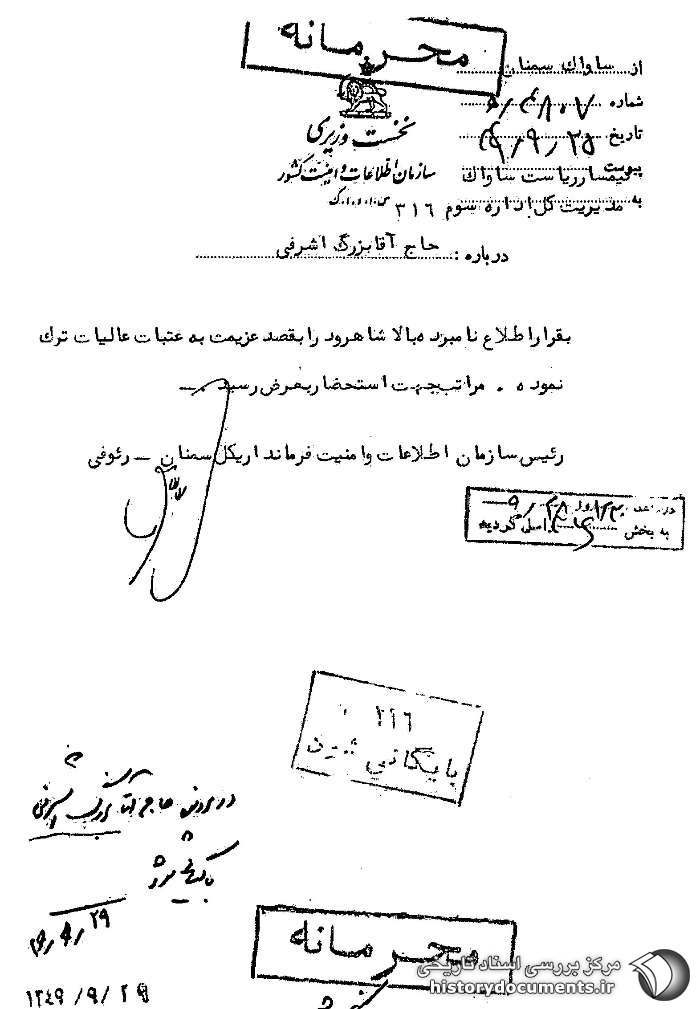 محرمانه
از ساواك سمنان
شماره ۵/۴۸۰۷
نخست وزیری
تاریخ ۴۹/۹/۲۵
سازمان اطلاعات و امنیت کشور
پیوست
تیمسار ریاست ساواك
به مدیریت کل اداره سوم ۳۱۶
درباره : حاج آقا بزرگ اشرفی
بقرار اطلاع نامبرده بالا شاهرود را بقصد عزیمت به عتبات عالیات ترك
نموده . مراتب جهت استحضار بعرض رسید . ـ
رئیس سازمان اطلاعات و امنیت فرمانداریکل سمنان ـ رئوفی
به بخش واصل گردید
۳۱۶
بایگانی شود
در پرونده حاج آقا بزرگ اشرفی
بایگانی شود
۴۹/۹/۲۹
۱۳٤۹/۹/۲۹
محرمانه
مرکز بررسی اسناد تاریخی
historydocuments.ir